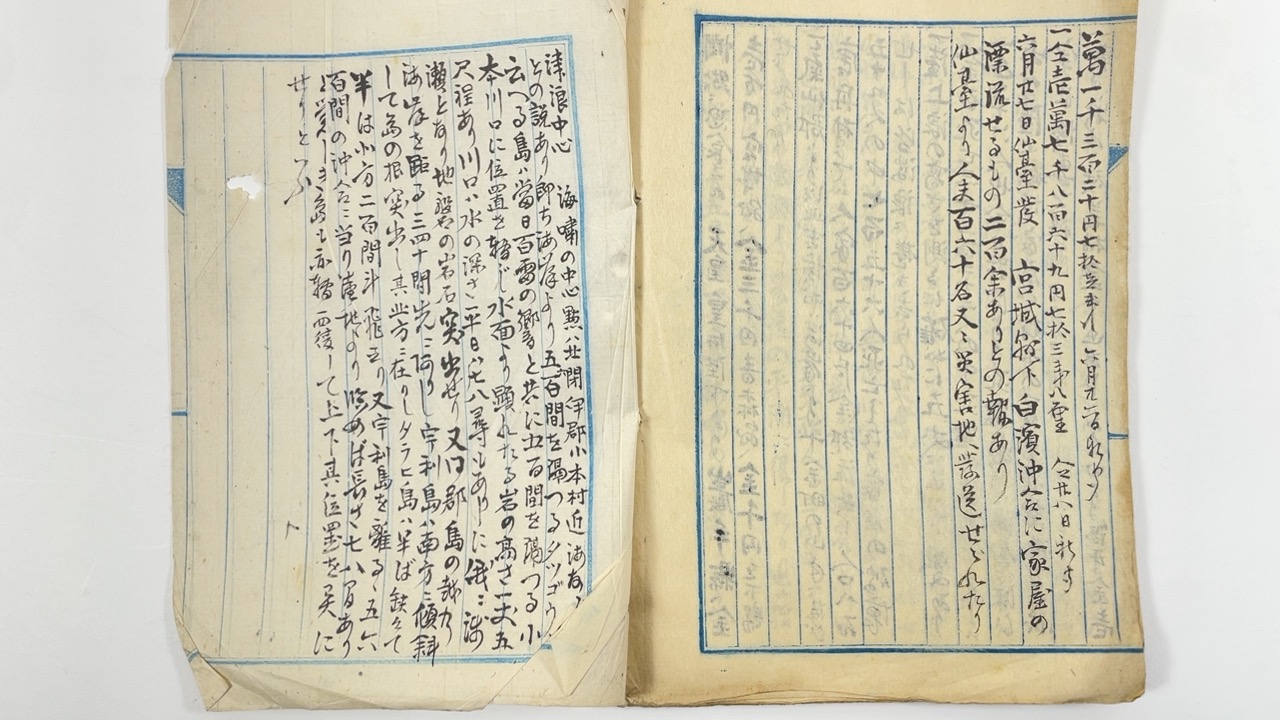 萬一千三百二十円七拾
一金壱萬七千八百六十九円七拾三 八 廿八日
六月廿七日仙臺發 宮城縣下白濱沖合に家屋の
漂流せるもの二百余ありとの報あり
仙臺より人夫百六十名又ミ災害地ヘ發送せられたり
津浪中心 海嘯の中心點ハ北閉伊郡小本村近海
との説あり即ち海岸より五百間を隔つる
云へる島ハ當日百雷の響と共に五百間を隔つる小
本川口に位置を轉じ水面より顕れたる岩の高さ一丈五
尺程あり川口ハ水の深さ平日ハ七八尋もありしに俄ニ淺
瀬となり地盤の岩石突出せり又同郡島の越乃
海岸を距る三四十間先ニ在りし宇利島ハ南方ニ傾斜
して島の根突出し其西方ニ在りしタラヒ島ハ半ば鉄
半は小方二百間斗飛至り又宇利島を離る五六
百間の沖合ニ当り崖地より眺めば長さ七八間あり
島も亦轉 して上下其位置を異に
せりといふ